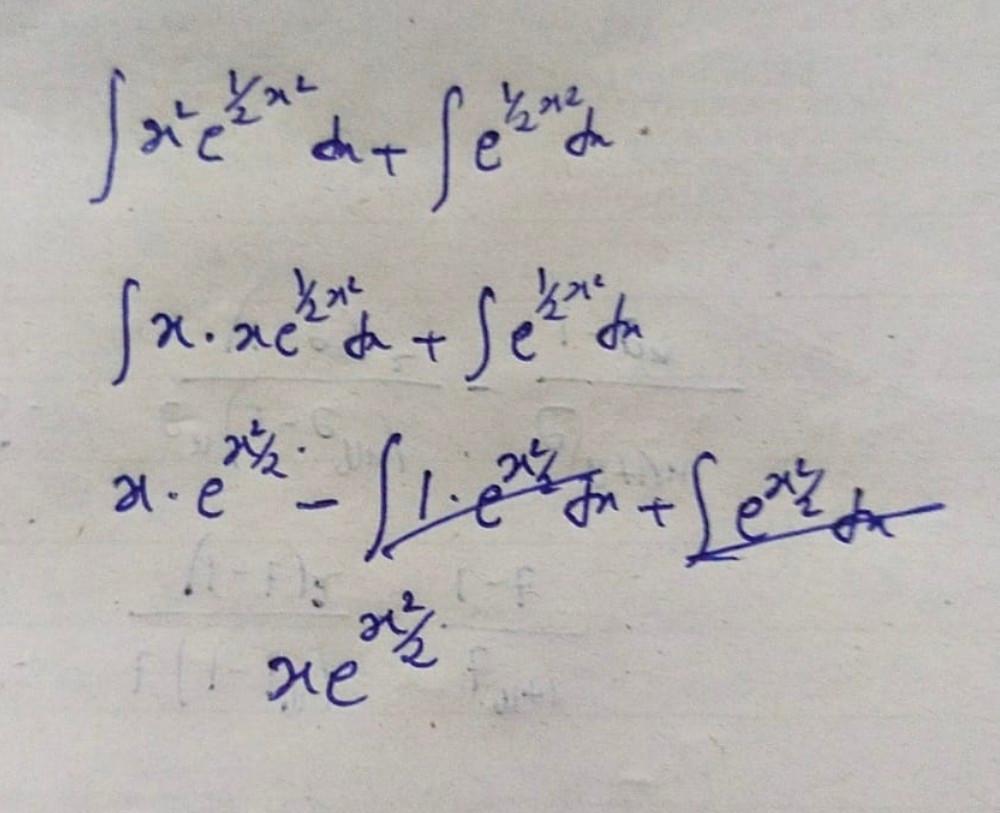 ∫x²e^{½x²} dx + ∫e^{½x²}dx.
∫x·xe^{½x²}dx + ∫e^{½x²}dx
x·e^{x²/2} - ∫1·e^{x²/2}dx + ∫e^{x²/2}dx
xe^{x²/2}